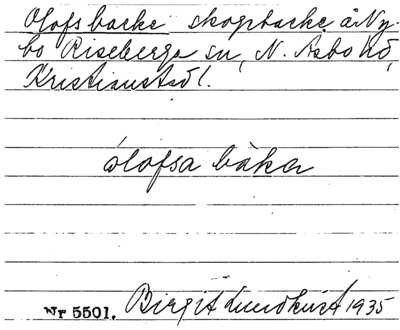 Olofs backe skogsbacke å Ny-
bo Riseberga sn, N. Åsbo hd,
Kristianstad l.
ólofsa bàka
Nr 5501. Birgit Lundkvist 1935